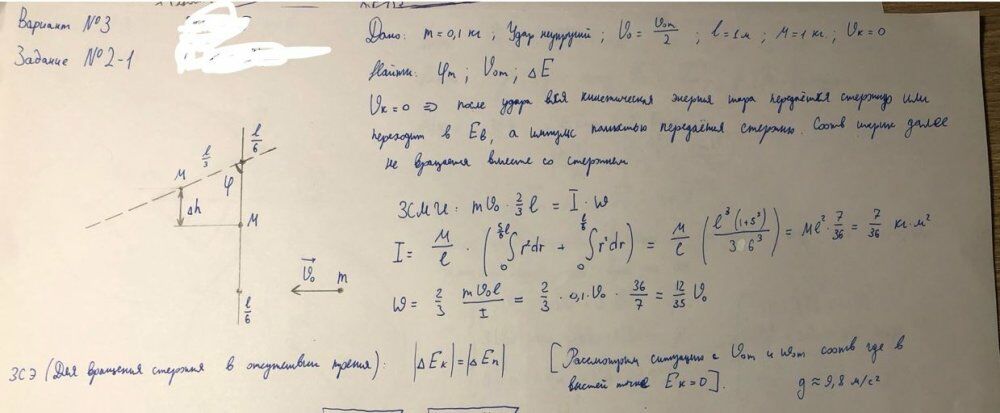 Вариант №3
Задание №2-1
Дано: m = 0,1 кг ; Удар неупругий ; V₀ = V₀m/2 ; l = 1 м ; M = 1 кг ; Vк = 0
Найти: φm ; V₀m ; ΔE
Vк = 0 => после удара вся кинетическая энергия шара передаётся стержню или
переходит в Eв, а импульс полностью передаётся стержню. Соотв шарик далее
не вращается вместе со стержнем
l/6
l/3
M
φ
Δh
M
V₀
m
l/6
ЗСМИ: mV₀ · 2/3 l = I · ω
I = M/l · (∫₀^(5/6 l) r²dr + ∫₀^(l/6) r²dr) = M/l (l³(1+5³)/(3·6³)) = Ml² · 7/36 = 7/36 кг·м²
ω = 2/3 mV₀l/I = 2/3 · 0,1·V₀ · 36/7 = 12/35 V₀
ЗСЭ (Для вращения стержня в отсутствии трения): |ΔEк| = |ΔEп| [Рассмотрим ситуацию с V₀m и ω₀m соотв где в
высшей точке Eк = 0]. g ≈ 9,8 м/с²